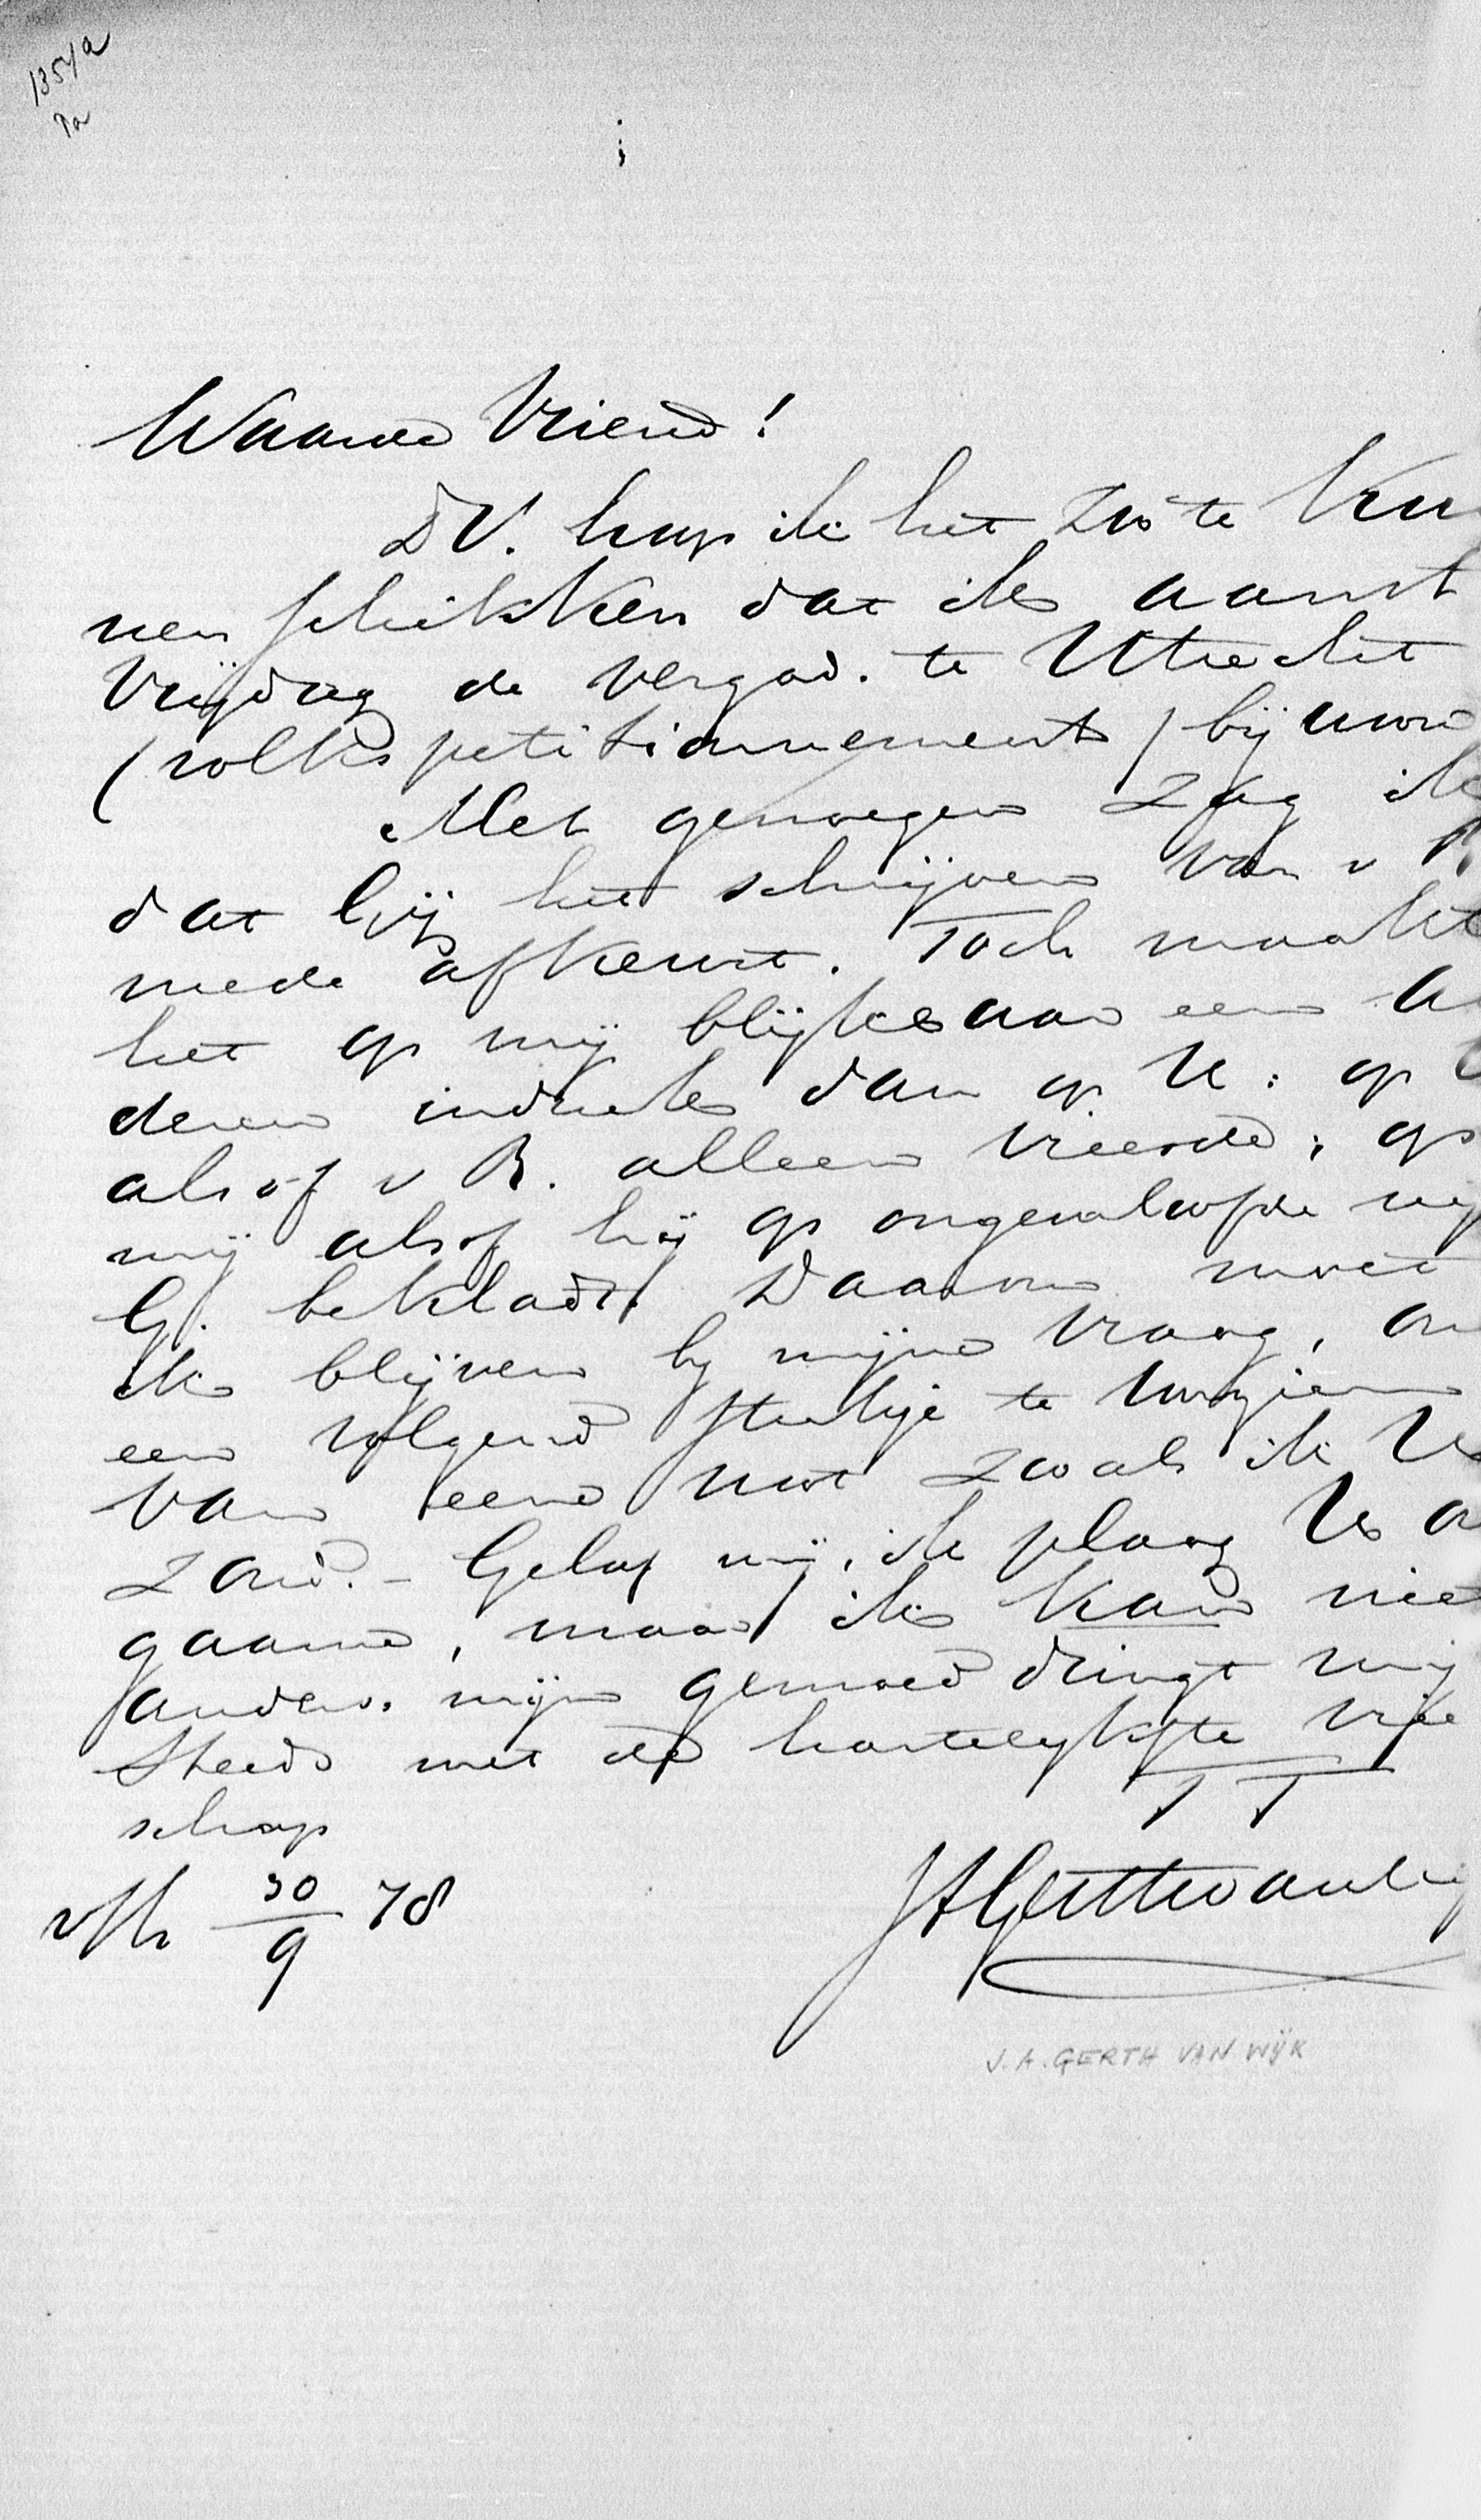 1354a
Pa
Waarde Vriend!
DV. hoop ik het zoo te kun
nen schikken dat ik aanst
Vrijdag de vergad. te Utrecht
(volkspetitionnement) bijwoo
Met genoegen zag ik
dat Gij het schrijven van v R.
mede afkeurt. Toch maakte
het op mij blijkbaar een an
deren indruk dan op U: op U
alsof v R. alleen vreesde; op
mij alsof hij op ongeoorloofde wijs
G. bekladt. Daarom moet
ik blijven bij mijne vraag, om
een volgend stukje te voorzien
van eene noot zooals ik U
zond. – Geloof mij, ik plaag U on
gaarne, maar ik kan niet
anders. mijn gemoed dringt mij
Steeds met de hartelykste vrie
schap
TT
JAGerthvanWij
30/9 78
J. A. GERTH VAN WIJK